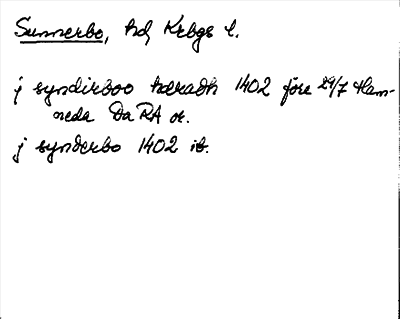 Sunnerbo, hd, Krbgs l.
j syndirboo hæradh 1402 före 29/7 Ham-
neda DaRA or.
j synderbo 1402 ib.